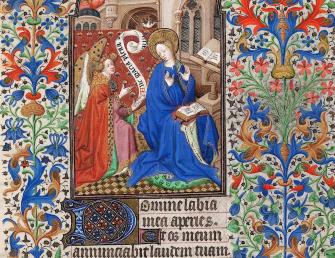 Domine labia
mea aperies.
Et os meum
annunciabit laudem tuam